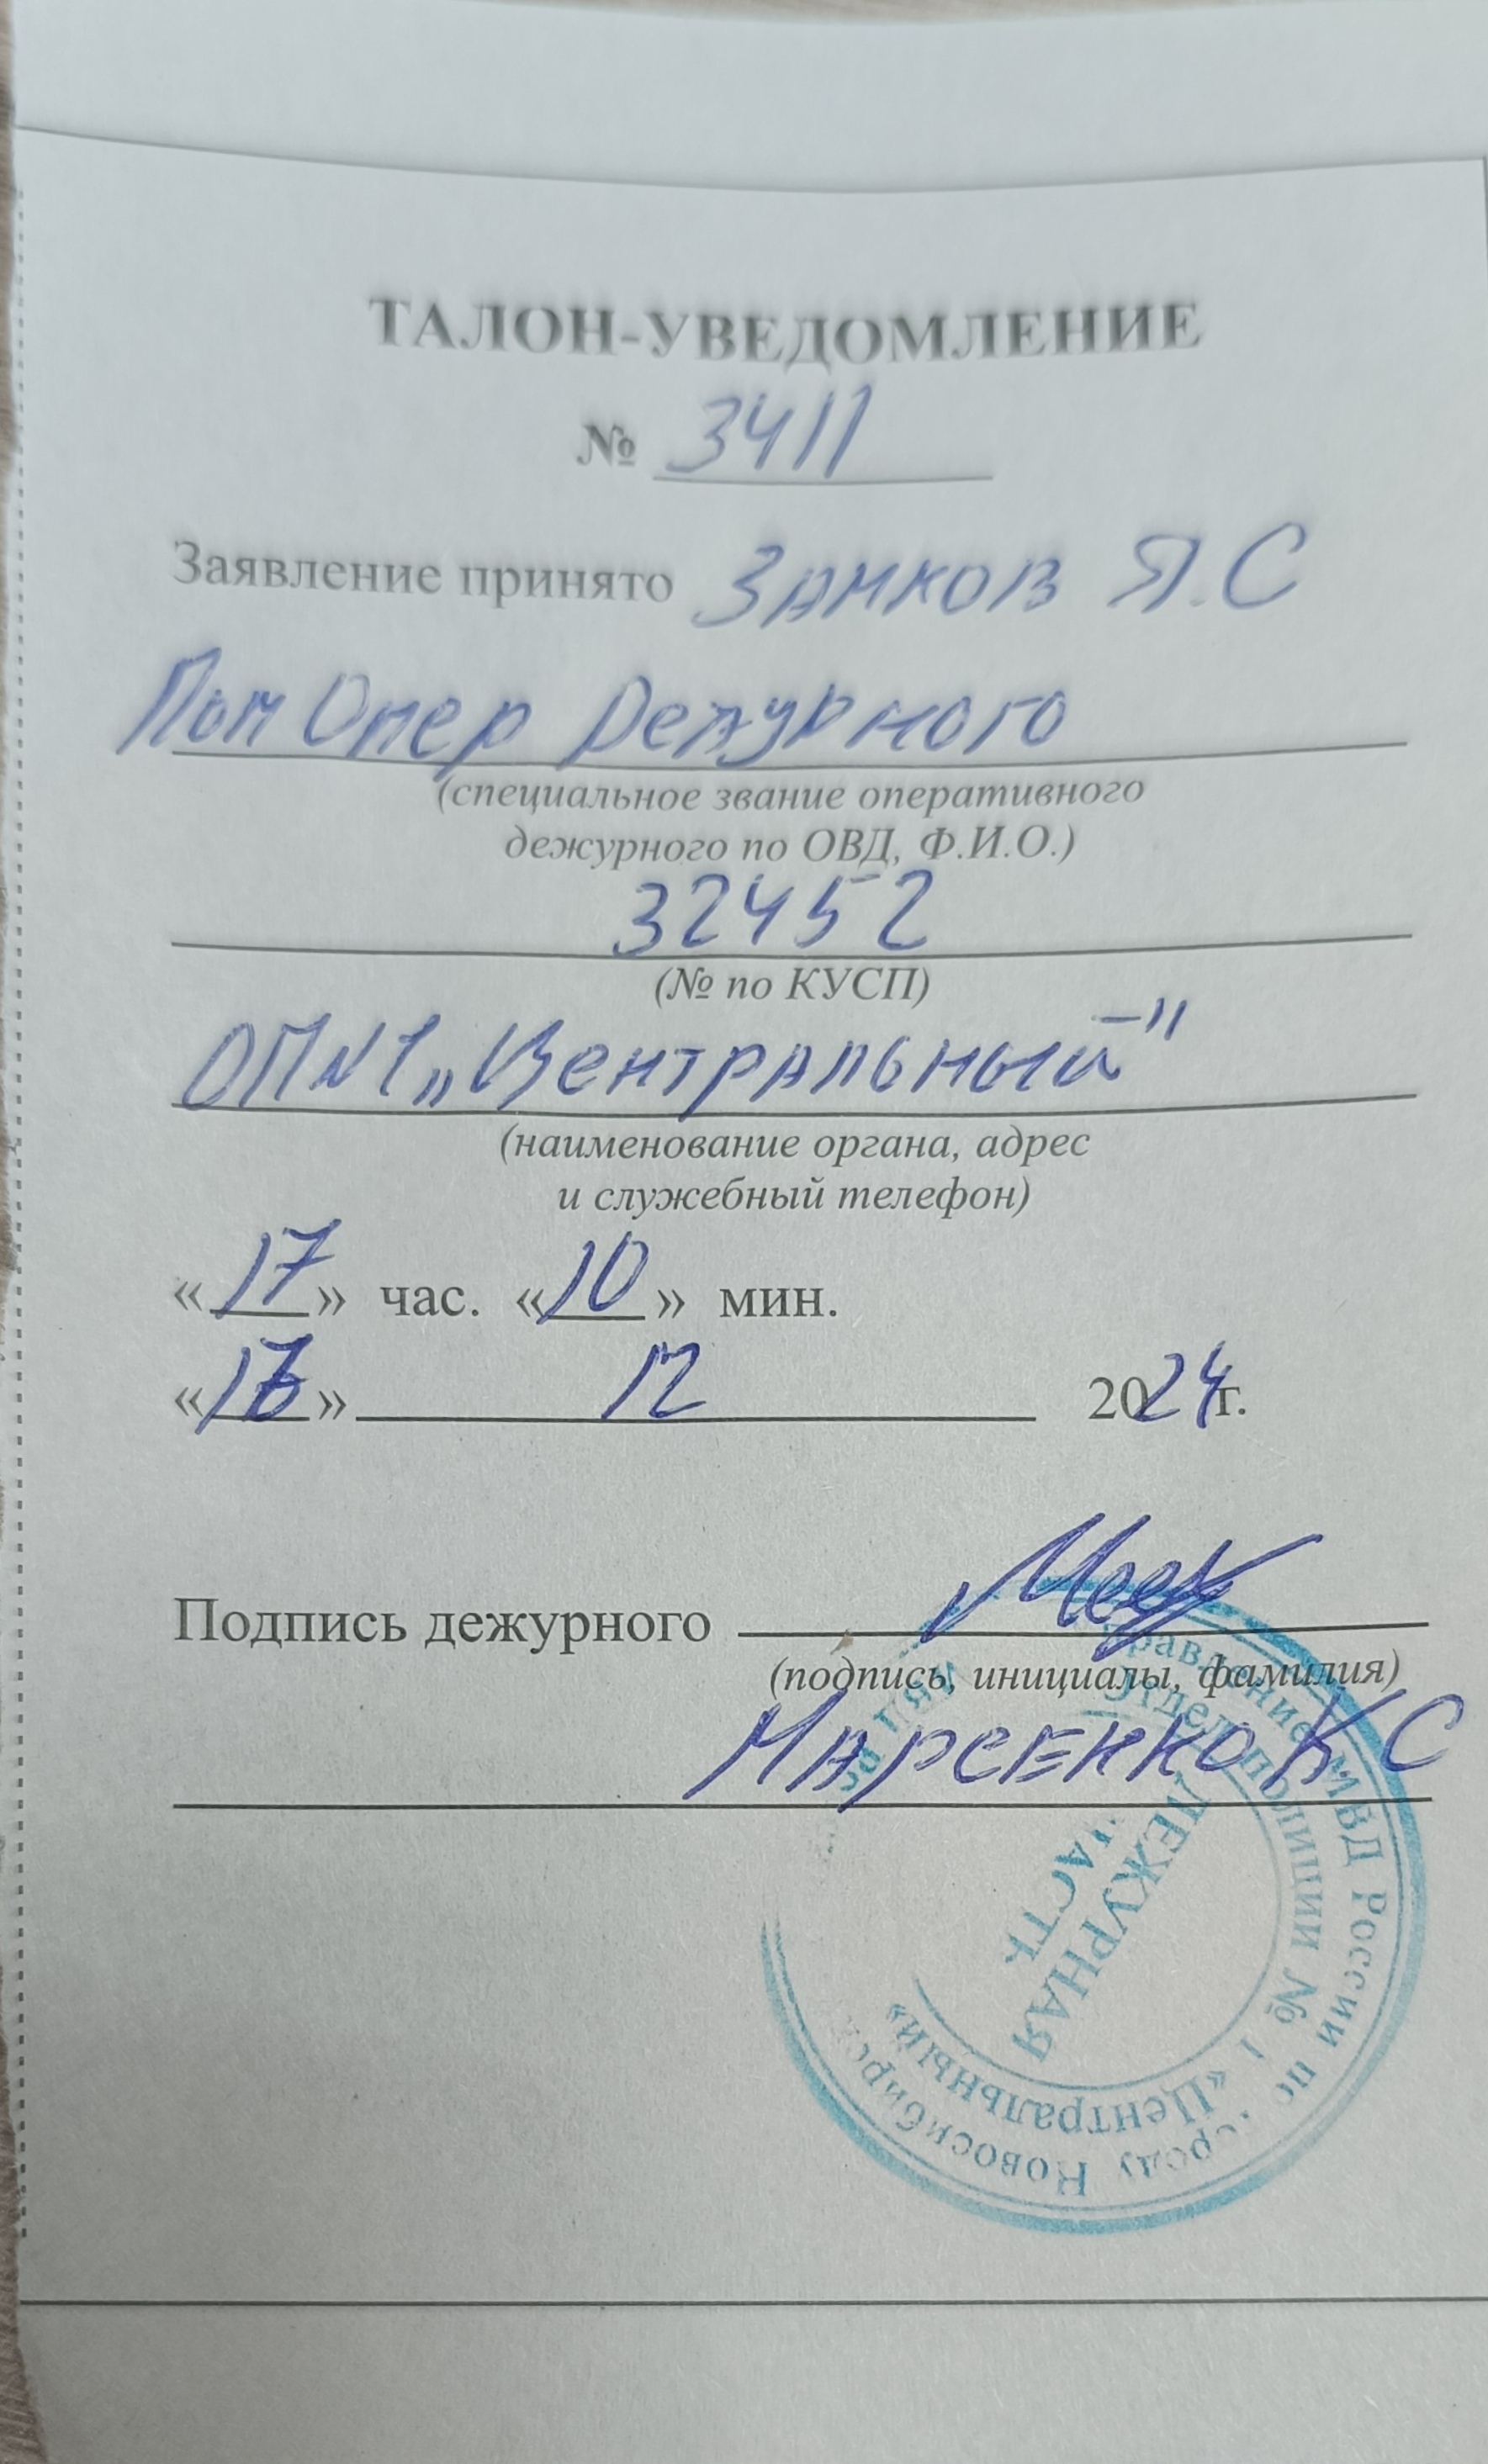 ТАЛОН-УВЕДОМЛЕНИЕ
№ 3411
Заявление принято Замков Я.С
Пом Опер Дежурного
(специальное звание оперативного
дежурного по ОВД, Ф.И.О.)
32452
(№ по КУСП)
ОП №1 „Центральный"
(наименование органа, адрес
и служебный телефон)
«17» час. «10» мин.
« » 12 2024г.
Подпись дежурного
(подпись, инициалы, фамилия)
Марсенко К.С
Управление МВД России по городу Новосибирску
Отдел полиции № 1 «Центральный»
ДЕЖУРНАЯ
ЧАСТЬ